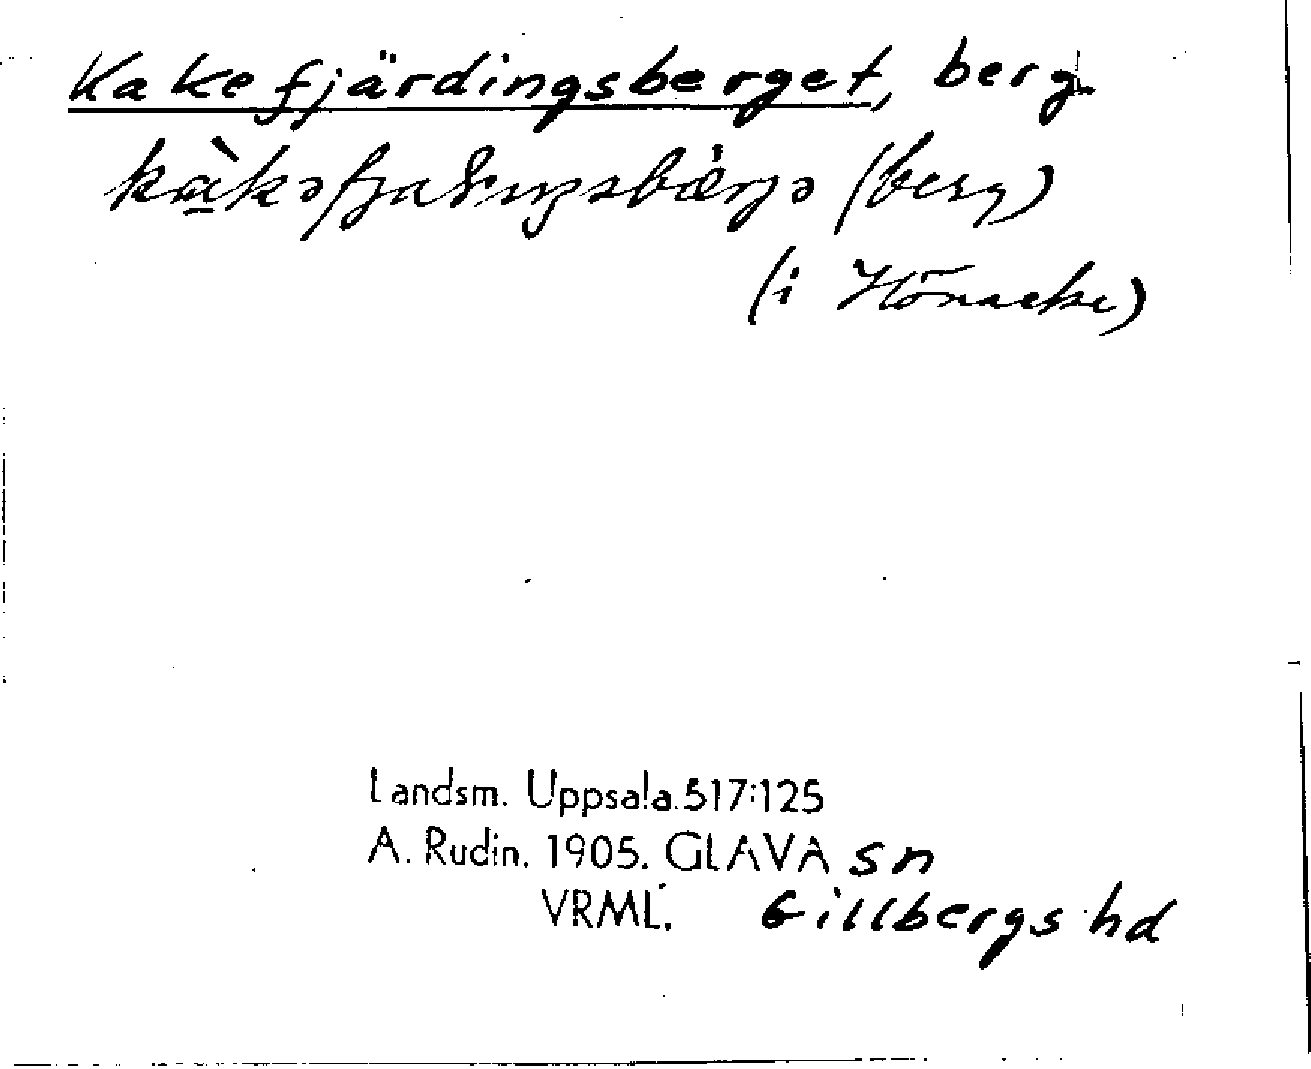 Kakefjärdingsberget, berg.
(berg)
(i Hönacke)
Landsm. Uppsala.517:125
A. Rudin. 1905. GLAVA sn
VRML. Gillbergs hd